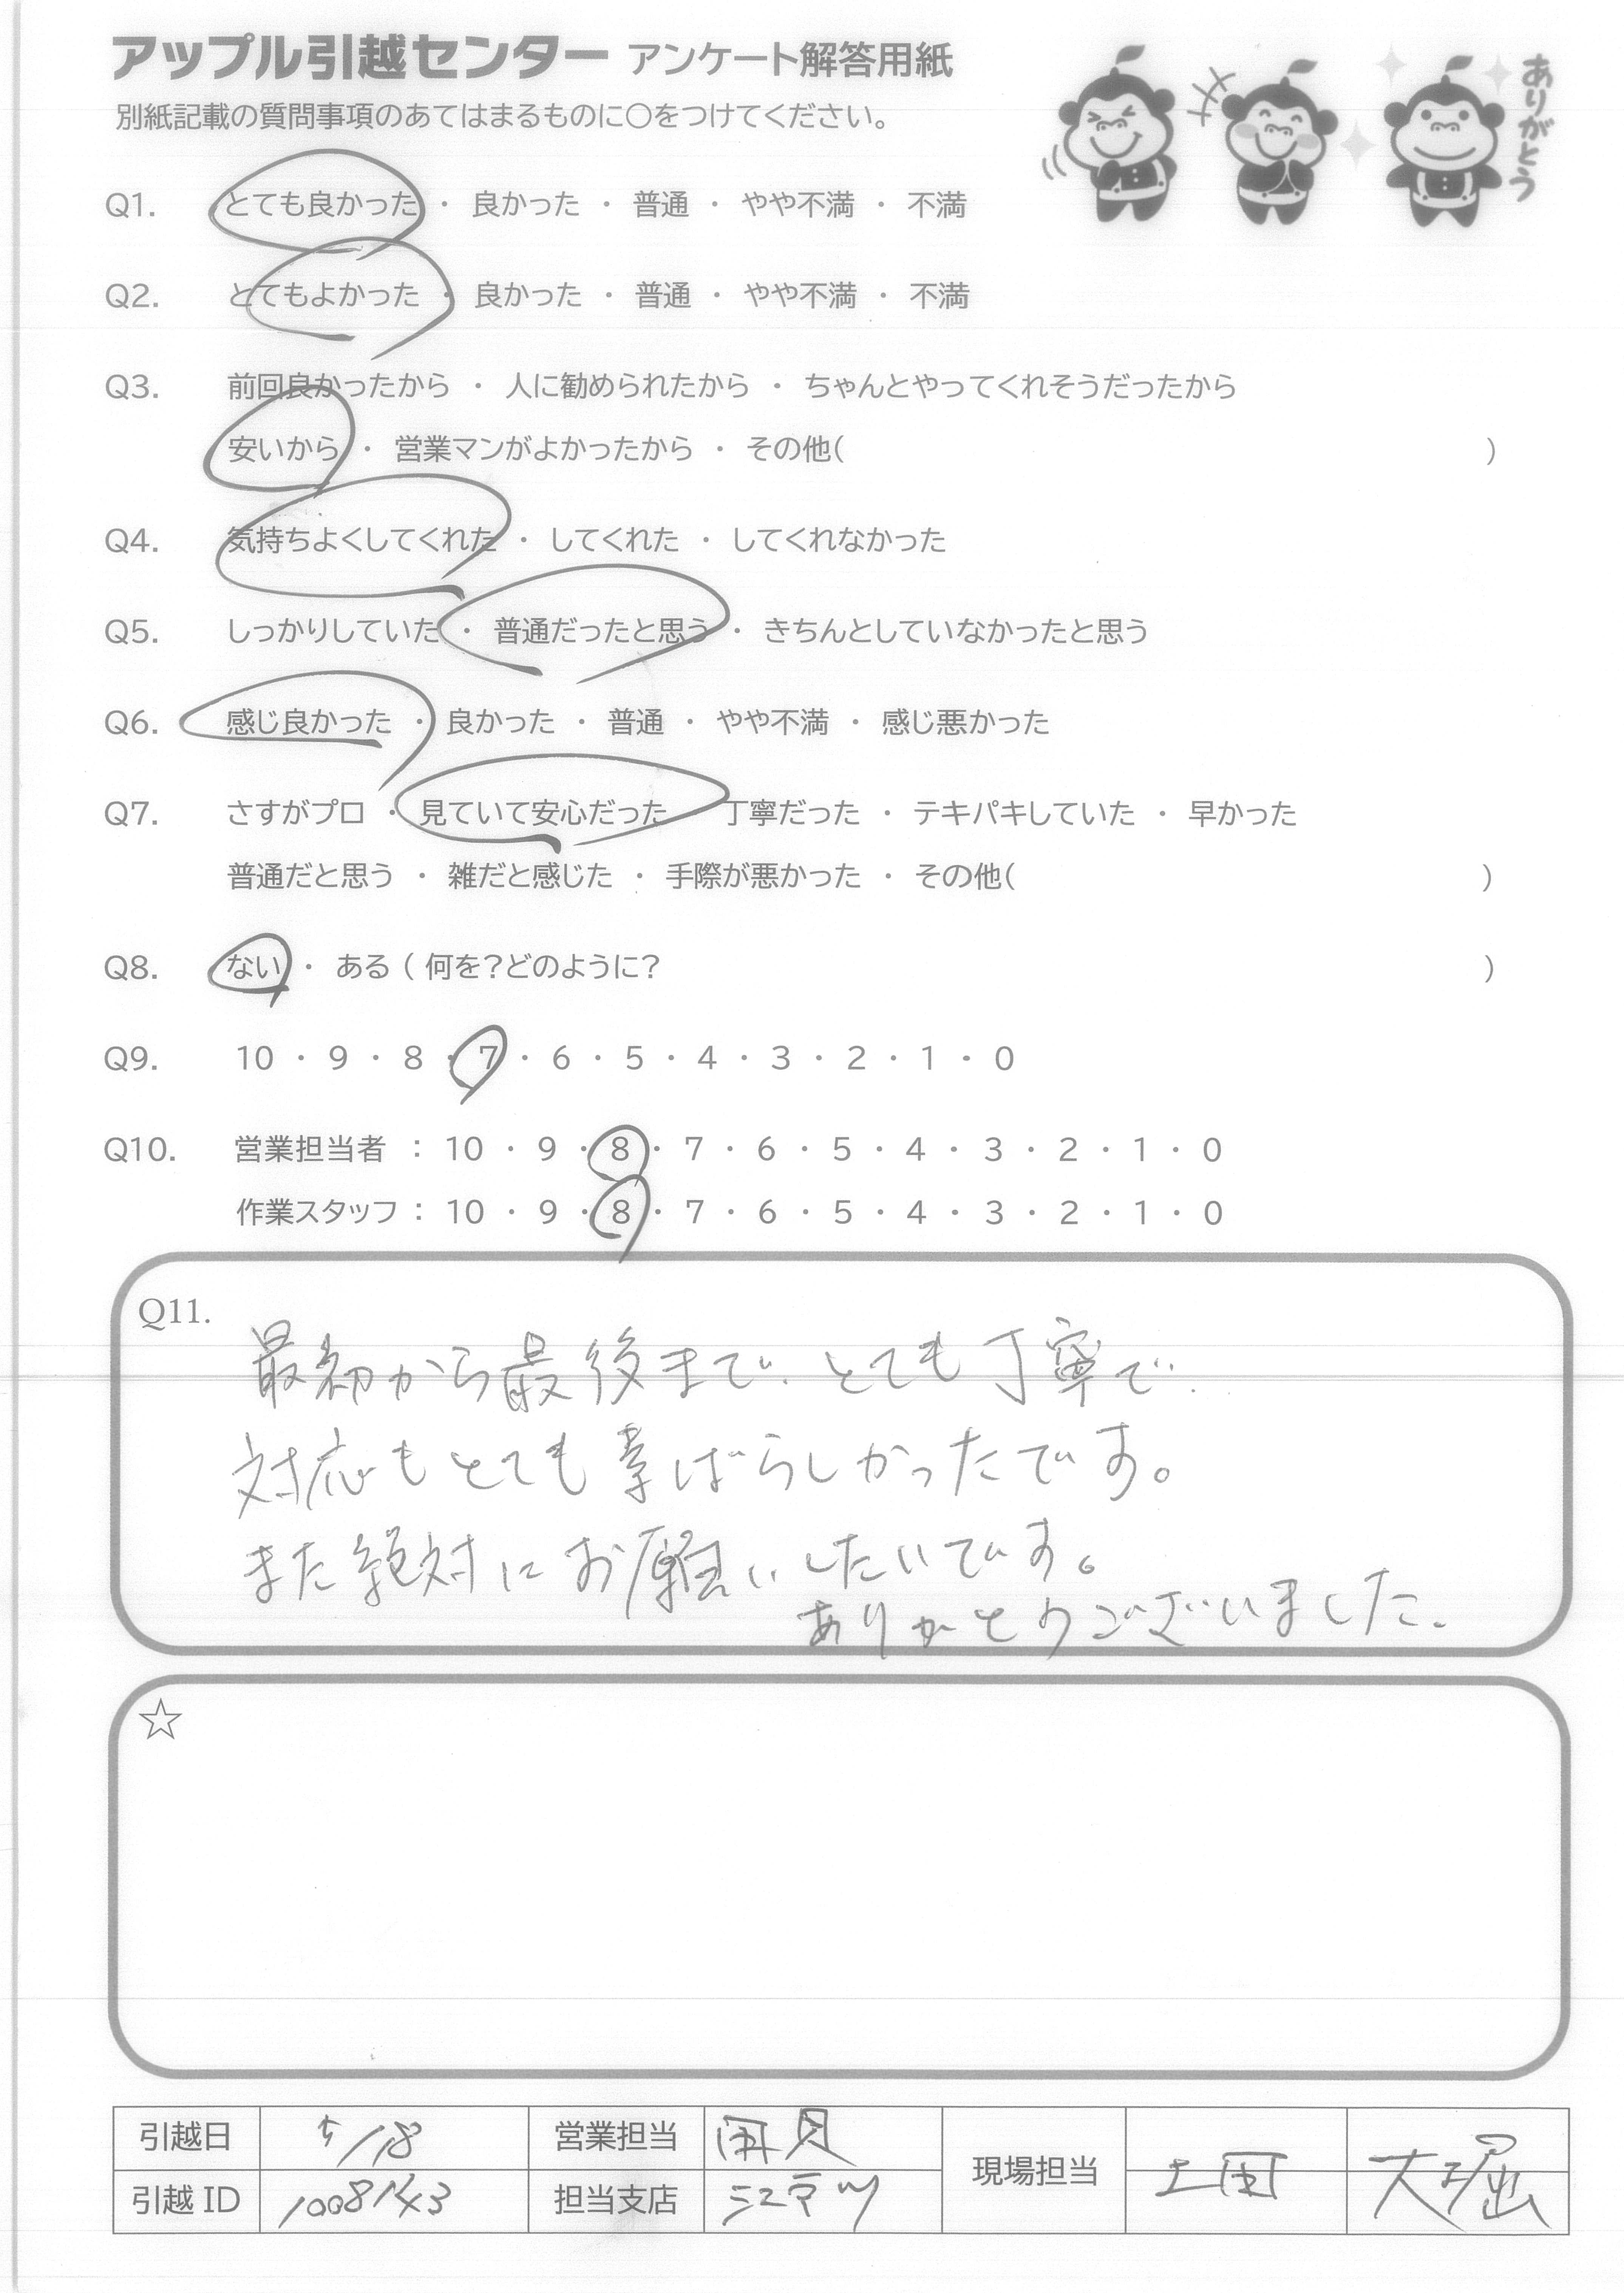 アップル引越センター アンケート解答用紙
別紙記載の質問事項のあてはまるものに〇をつけてください。
ありがとう
Q1. とても良かった ・ 良かった ・ 普通 ・ やや不満 ・ 不満
Q2. とてもよかった ・ 良かった ・ 普通 ・ やや不満 ・ 不満
Q3. 前回良かったから ・ 人に勧められたから ・ ちゃんとやってくれそうだったから
安いから ・ 営業マンがよかったから ・ その他( )
Q4. 気持ちよくしてくれた ・ してくれた ・ してくれなかった
Q5. しっかりしていた ・ 普通だったと思う ・ きちんとしていなかったと思う
Q6. 感じ良かった ・ 良かった ・ 普通 ・ やや不満 ・ 感じ悪かった
Q7. さすがプロ ・ 見ていて安心だった ・ 丁寧だった ・ テキパキしていた ・ 早かった
普通だと思う ・ 雑だと感じた ・ 手際が悪かった ・ その他( )
Q8. ない ・ ある ( 何を?どのように? )
Q9. 10 ・ 9 ・ 8 ・ 7 ・ 6 ・ 5 ・ 4 ・ 3 ・ 2 ・ 1 ・ 0
Q10. 営業担当者 : 10 ・ 9 ・ 8 ・ 7 ・ 6 ・ 5 ・ 4 ・ 3 ・ 2 ・ 1 ・ 0
作業スタッフ : 10 ・ 9 ・ 8 ・ 7 ・ 6 ・ 5 ・ 4 ・ 3 ・ 2 ・ 1 ・ 0
Q11.
最初から最後まで、とても丁寧で、
対応もとても素ばらしかったです。
また絶対にお願いしたいです。
ありがとうございました。
☆
引越日 5/18 営業担当
現場担当 土田 大堀
引越 ID 1008143 担当支店